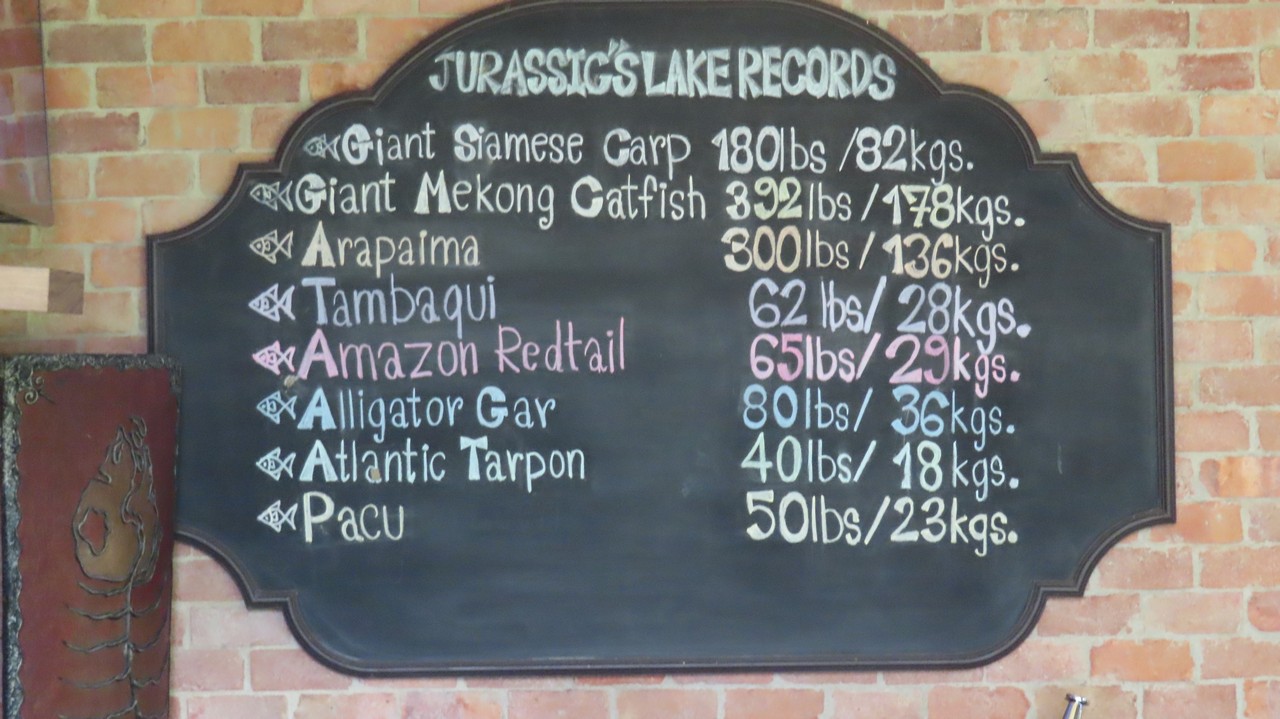 JURASSIG"S LAKE RECORDS
Giant Siamese Carp 180lbs /82kgs.
Giant Mekong Catfish 392lbs /178kgs.
Arapaima 300lbs / 136kgs.
Tambaqui 62 lbs/ 28kgs.
Amazon Redtail 65lbs/ 29kgs.
Alligator Gar 80lbs/ 36kgs.
Atlantic Tarpon 40lbs/ 18kgs.
Pacu 50lbs/23kgs.